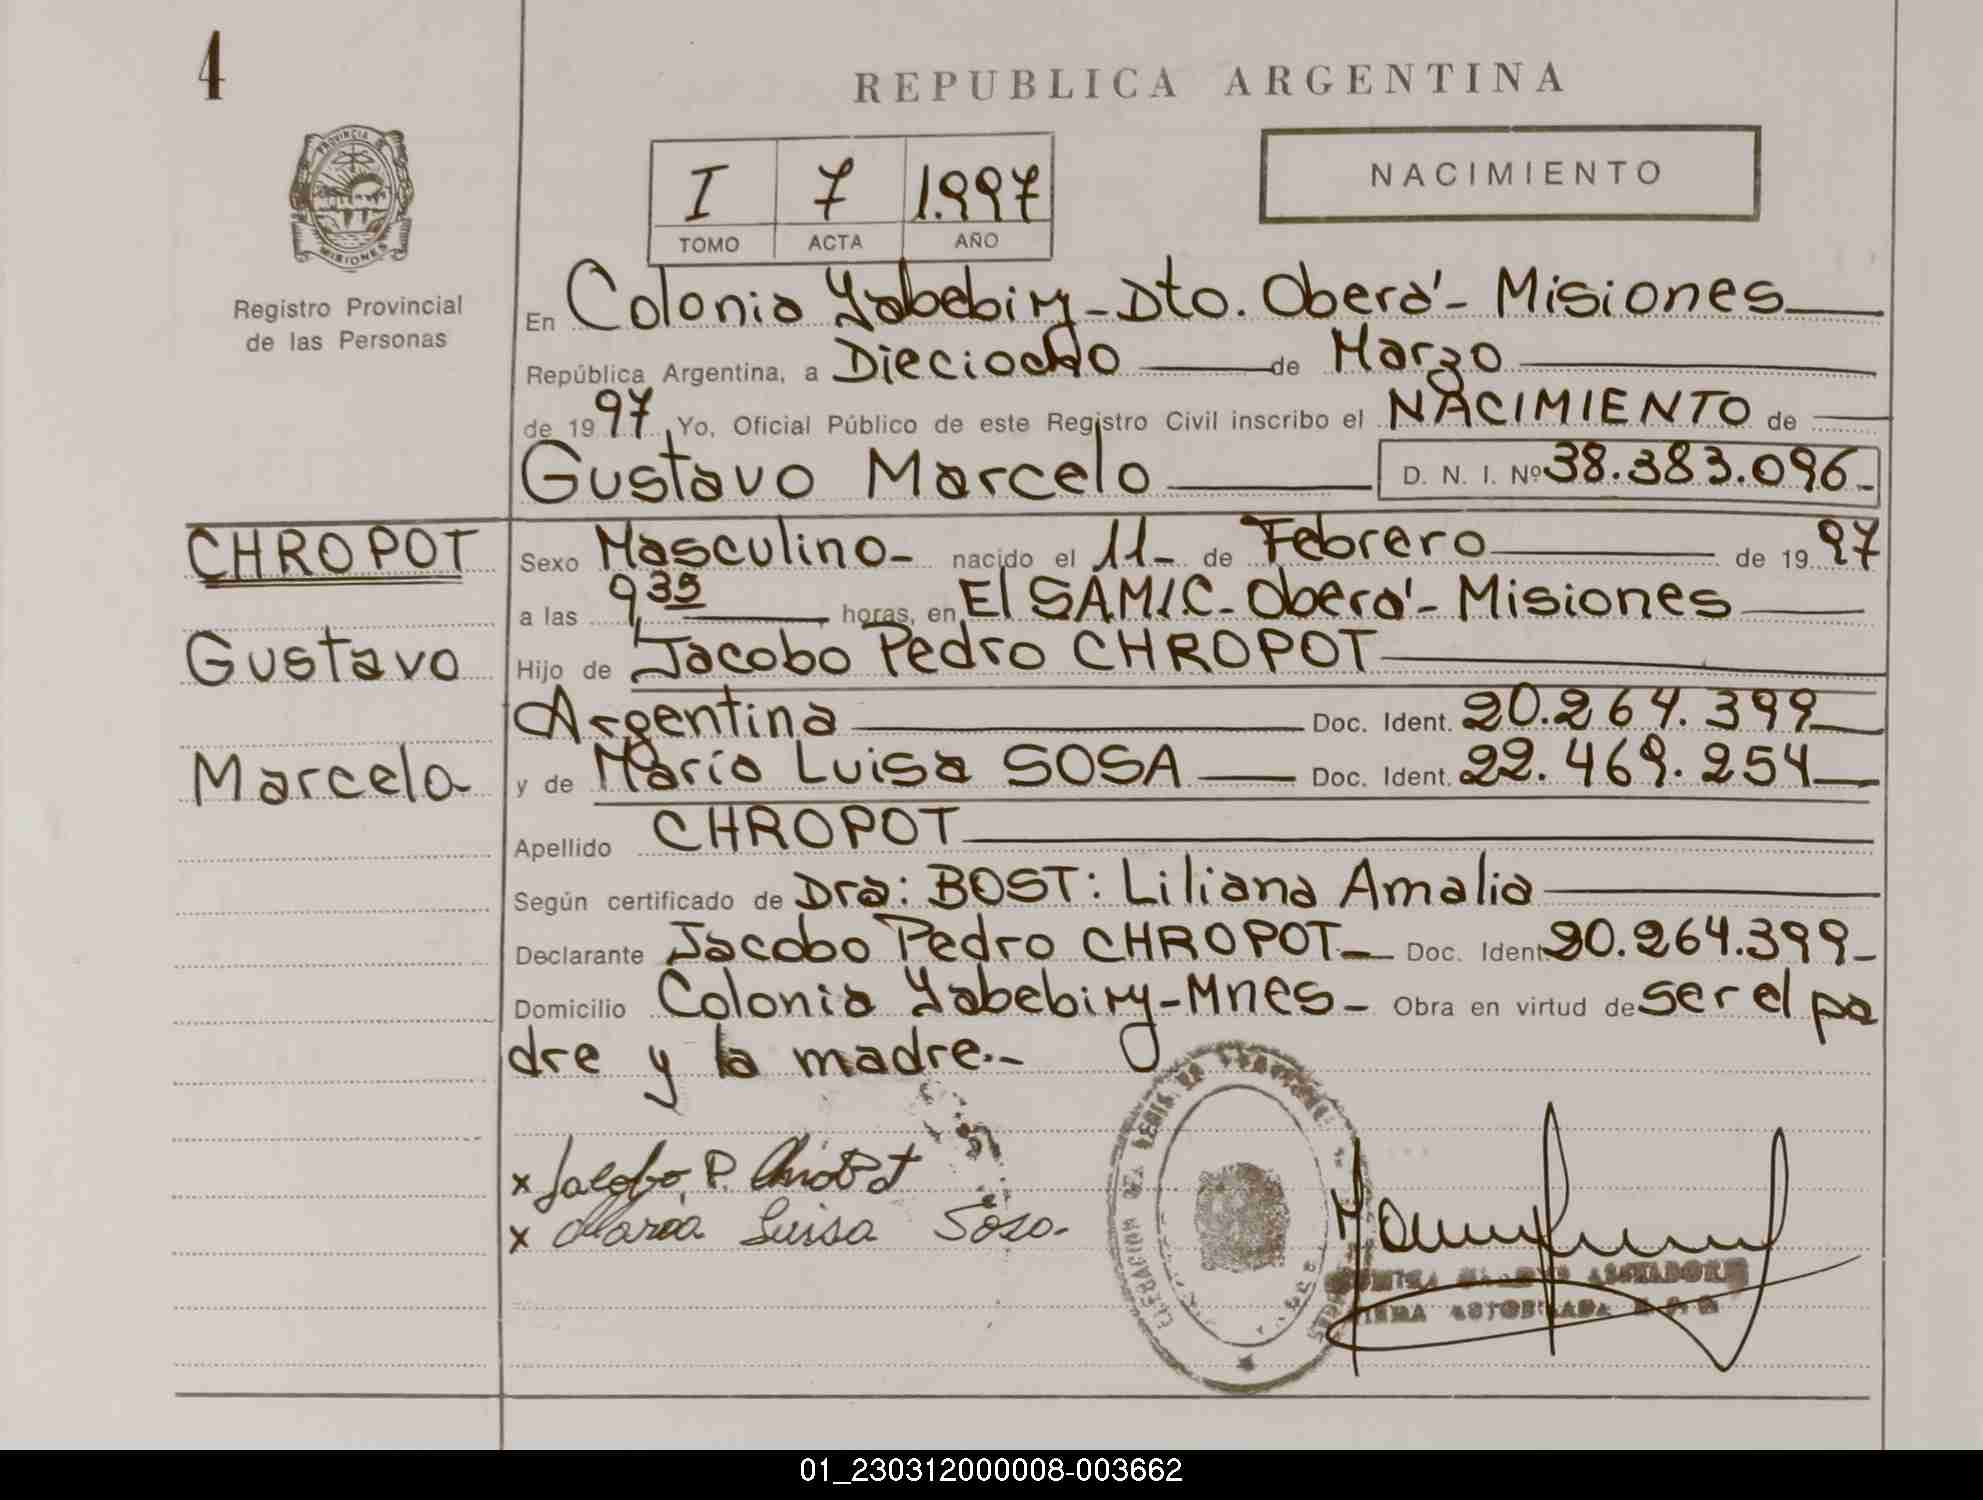 4
REPUBLICA ARGENTINA
PROVINCIA
MISIONES
I 7 1.997
TOMO ACTA AÑO
NACIMIENTO
Registro Provincial
de las Personas
En Colonia Yabebiry - Dto. Oberá - Misiones
República Argentina, a Dieciocho de Marzo
de 1997 Yo, Oficial Público de este Registro Civil inscribo el NACIMIENTO de
Gustavo Marcelo D. N. I. Nº 38.383.096
CHROPOT
Gustavo
Marcelo
Sexo Masculino - nacido el 11 - de Febrero de 1997
a las 9 35 horas, en El SAMIC - Oberá - Misiones
Hijo de Jacobo Pedro CHROPOT
Argentina Doc. Ident. 20.264.399
y de María Luisa SOSA Doc. Ident. 22.469.254
Apellido CHROPOT
Según certificado de Dra: BOST: Liliana Amalia
Declarante Jacobo Pedro CHROPOT - Doc. Ident 20.264.399
Domicilio Colonia Yabebiry - Mnes - Obra en virtud de ser el pa
dre y la madre.-
x Jacobo P. Chropot
x María Luisa Sosa
01_230312000008-003662